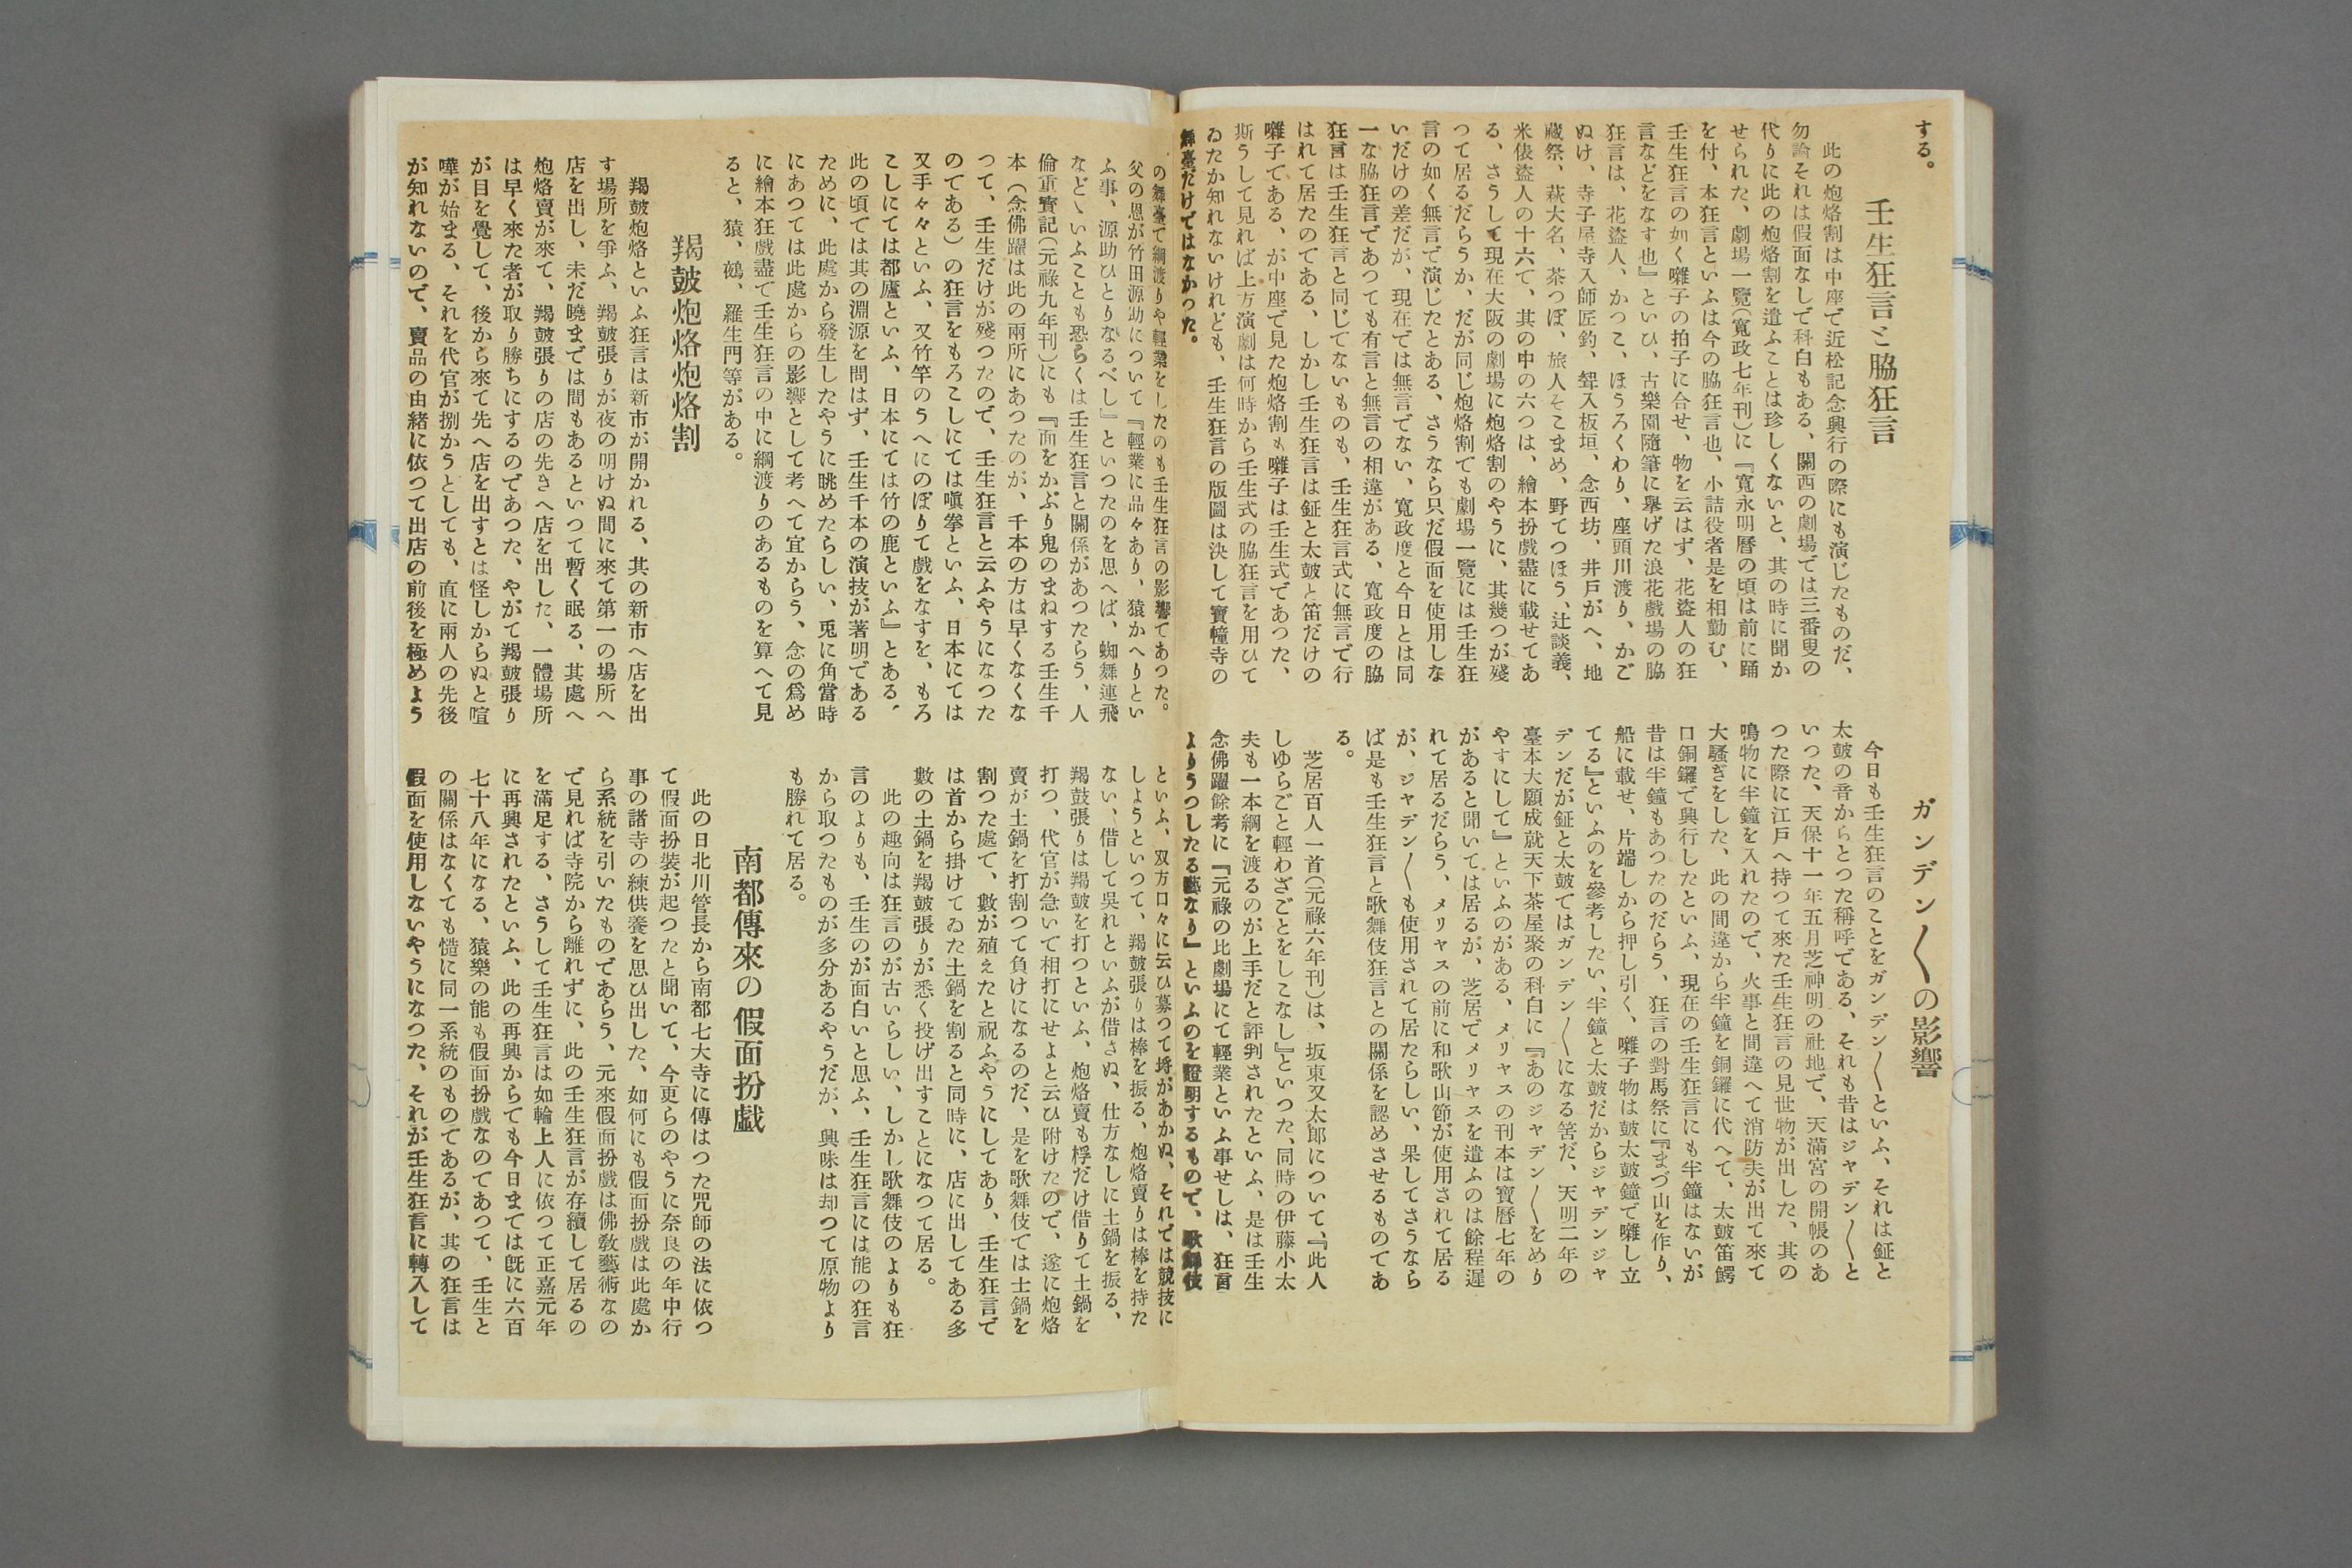 する。
壬生狂言と脇狂言
此の炮烙割は中座で近松記念興行の際にも演じたものだ、
勿論それは假面なしで科白もある、關西の劇場では三番叟の
代りに此の炮烙割を遣ふことは珍しくないと、其の時に聞か
せられた、劇場一覽(寛政七年刊)に『寛永明暦の頃は前に踊
を付、本狂言といふは今の脇狂言也、小詰役者是を相勤む、
壬生狂言の如く囃子の拍子に合せ、物を云はず、花盜人の狂
言などをなす也』といひ、古樂園隨筆に擧げた浪花戲場の脇
狂言は、花盜人、かつこ、ほうろくわり、座頭川渡り、かご
ぬけ、寺子屋寺入師匠釣、聟入板垣、念西坊、井戸がへ、地
藏祭、萩大名、茶つぼ、旅人そこまめ、野てつほう、辻談義、
米俵盜人の十六で、其の中の六つは、繪本扮戲盡に載せてあ
る、さうして現在大阪の劇場に炮烙割のやうに、其幾つが殘
つて居るだらうか、だが同じ炮烙割でも劇場一覽には壬生狂
言の如く無言で演じたとある、さうなら只だ假面を使用しな
いだけの差だが、現在では無言でない、寛政度と今日とは同
一な脇狂言であつても有言と無言の相違がある、寛政度の脇
狂言は壬生狂言と同じでないものも、壬生狂言式に無言で行
はれて居たのである、しかし壬生狂言は鉦と太皷と笛だけの
囃子である、が中座で見た炮烙割も囃子は壬生式であつた、
斯うして見れば上方演劇は何時から壬生式の脇狂言を用ひて
ゐたか知れないけれども、壬生狂言の版圖は決して寶幢寺の
舞臺だけではなかつた。
ガンデン〱の影響
今日も壬生狂言のことをガンデン〱といふ、それは鉦と
太皷の音からとつた稱呼である、それも昔はジャデン〱と
いつた、天保十一年五月芝神明の社地で、天滿宮の開帳のあ
つた際に江戸へ持つて來た壬生狂言の見世物が出した、其の
鳴物に半鐘を入れたので、火事と間違へて消防夫が出て來て
大騷ぎをした、此の間違から半鐘を銅鑼に代へて、太皷笛鰐
口銅鑼で興行したといふ、現在の壬生狂言にも半鐘はないが
昔は半鐘もあつたのだらう、狂言の對馬祭に『まづ山を作り、
船に載せ、片端しから押し引く、囃子物は皷太皷鐘で囃し立
てる』といふのを參考したい、半鐘と太皷だからジャデンジャ
デンだが鉦と太皷ではガンデン〱になる筈だ、天明二年の
臺本大願成就天下茶屋聚の科白に『あのジャデン〱をめり
やすにして』といふのがある、メリヤスの刊本は寶暦七年の
があると聞いては居るが、芝居でメリヤスを遣ふのは餘程遲
れて居るだらう、メリヤスの前に和歌山節が使用されて居る
が、ジャデン〱も使用されて居たらしい、果してさうなら
ば是も壬生狂言と歌舞伎狂言との關係を認めさせるものであ
る。
芝居百人一首(元祿六年刊)は、坂東又太郎について、『此人
しゆらごと輕わざごとをしこなし』といつた、同時の伊藤小太
夫も一本綱を渡るのが上手だと評判されたといふ、是は壬生
念佛躍餘考に『元祿の比劇場にて輕業といふ事せしは、狂言
よりうつしたる藝なり』といふのを證明するもので、歌舞伎
の舞臺で綱渡りや輕業をしたのも壬生狂言の影響であつた。
父の恩が竹田源助について『輕業に品々あり、猿かへりとい
ふ事、源助ひとりなるべし』といつたのを思へば、蜘舞連飛
などゝいふことも恐らくは壬生狂言と關係があつたらう、人
倫重寳記(元祿九年刊)にも『面をかぶり鬼のまねする壬生千
本(念佛躍は此の兩所にあつたのが、千本の方は早くなくな
つて、壬生だけが殘つたので、壬生狂言と云ふやうになつた
のである)の狂言をもろこしにては嗔拳といふ、日本にては
又手々々といふ、又竹竿のうへにのぼりて戲をなすを、もろ
こしにては都廬といふ、日本にては竹の鹿といふ』とある、
此の頃では其の淵源を問はず、壬生千本の演技が著明である
ために、此處から發生したやうに眺めたらしい、兎に角當時
にあつては此處からの影響として考へて宜からう、念の爲め
に繪本狂戲盡で壬生狂言の中に綱渡りのあるものを算へて見
ると、猿、鵺、羅生門等がある。
羯皷炮烙炮烙割
羯皷炮烙といふ狂言は新市が開かれる、其の新市へ店を出
す場所を爭ふ、羯皷張りが夜の明けぬ間に來て第一の場所へ
店を出し、未だ曉までは間もあるといつて暫く眠る、其處へ
炮烙賣が來て、羯皷張りの店の先きへ店を出した、一體場所
は早く來た者が取り勝ちにするのであつた、やがて羯皷張り
が目を覺して、後から來て先へ店を出すとは怪しからぬと喧
嘩が始まる、それを代官が捌かうとしても、直に兩人の先後
が知れないので、賣品の由緒に依つて出店の前後を極めよう
といふ、双方口々に云ひ募つて埓があかぬ、それでは競技に
しようといつて、羯皷張りは棒を振る、炮烙賣りは棒を持た
ない、借して吳れといふが借さぬ、仕方なしに土鍋を振る、
羯鼓張りは羯皷を打つといふ、炮烙賣も桴だけ借りて土鍋を
打つ、代官が急いで相打にせよと云ひ附けたので、遂に炮烙
賣が土鍋を打割つて負けになるのだ、是を歌舞伎では土鍋を
割つた處で、數が殖えたと祝ふやうにしてあり、壬生狂言で
は首から掛けてゐた土鍋を割ると同時に、店に出してある多
數の土鍋を羯皷張りが悉く投げ出すことになつて居る。
此の趣向は狂言のが古いらしい、しかし歌舞伎のよりも狂
言のよりも、壬生のが面白いと思ふ、壬生狂言には能の狂言
から取つたものが多分あるやうだが、興味は却つて原物より
も勝れて居る。
南都傳來の假面扮戲
此の日北川管長から南都七大寺に傳はつた咒師の法に依つ
て假面扮裝が起つたと聞いて、今更らのやうに奈良の年中行
事の諸寺の練供養を思ひ出した、如何にも假面扮戲は此處か
ら系統を引いたものであらう、元來假面扮戲は佛敎藝術なの
で見れば寺院から離れずに、此の壬生狂言が存續して居るの
を滿足する、さうして壬生狂言は如輪上人に依つて正嘉元年
に再興されたといふ、此の再興からでも今日までは既に六百
七十八年になる、猿樂の能も假面扮戲なのであつて、壬生と
の關係はなくても慥に同一系統のものであるが、其の狂言は
假面を使用しないやうになつた、それが壬生狂言に轉入して